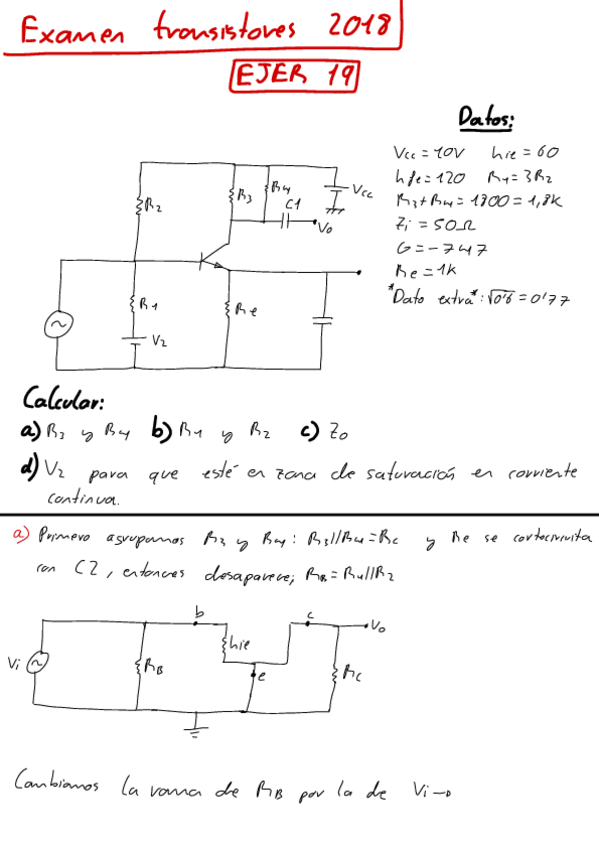 Examen transistores 2018
EJER 19
Datos:
Vcc = 10V hie = 60
hfe = 120 R1 = 3R2
R3 + R4 = 1800 = 1,8K
Zi = 50Ω
G = -747
Re = 1K
*Dato extra*: √0'6 = 0'77
R2
R3
R4
C1
Vcc
Vo
R1
Re
V2
Calcular:
a) R3 y R4 b) R1 y R2 c) Zo
d) V2 para que esté en zona de saturación en corriente
continua.
a) Primero agrupamos R3 y R4: R3//R4 = Rc y Re se cortocircuita
con C2, entonces desaparece; RB = R1//R2
b
c
Vo
hie
Vi
RB
e
Rc
Cambiamos la rama de RB por la de Vi →